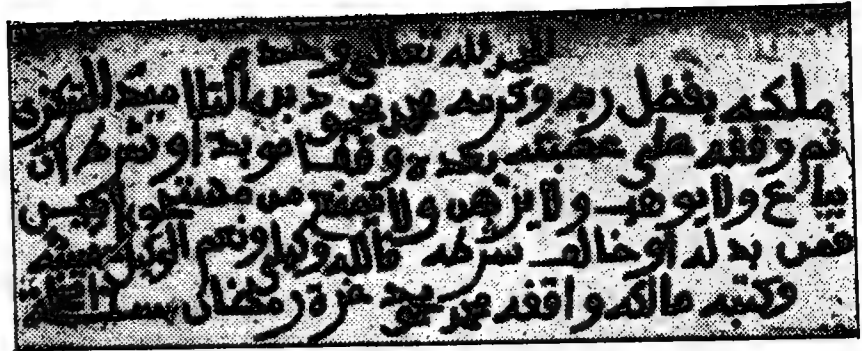 الحمد لله تعالى وحده
ملكه بفضل ربه وكرمه محمد محمود بن التلاميد التركزي
ثم وقفه على عصبته بعده وقفا مؤبدا وشرط ان
يباع ولا يوهب ولا يرهن ولا يمنع من
فمن بدله أو خالف شرطه فالله وكيلي ونعم الوكيل
وكتبه مالكه واقفه محمد محمود غرة رمضان